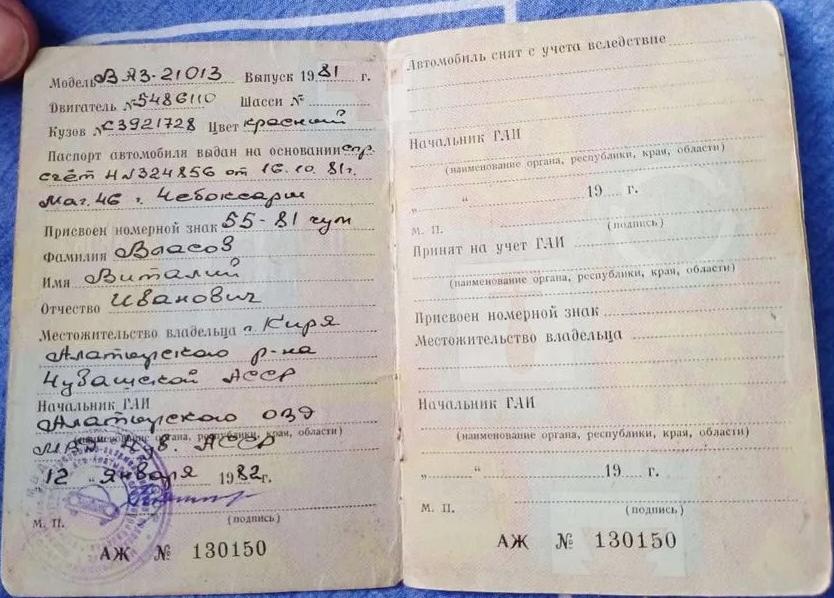 Модель ВАЗ-21013 Выпуск 1981 г.
Двигатель №5486110 Шасси №
Кузов №С3921728 Цвет красный
Паспорт автомобиля выдан на основании спр.
счёт НN324856 от 16.10.81г.
Маг.46 г. Чебоксары
Присвоен номерной знак 55-81 чуп
Фамилия Власов
Имя Виталий
Отчество Иванович
Местожительство владельца п. Киря
Алатырского р-на
Чувашской АССР
Начальник ГАИ
Алатырского ОВД
(наименование органа, республики, края, области)
МВД Чув. АССР
12 " Января 1982 г.
М. П. (подпись)
АЖ № 130150
Автомобиль снят с учета вследствие
Начальник ГАИ
(наименование органа, республики, края, области)
„ “ 19 г.
М. П. (подпись)
Принят на учет ГАИ
(наименование органа, республики, края, области)
Присвоен номерной знак
Местожительство владельца
Начальник ГАИ
(наименование органа, республики, края, области)
„ “ 19 г.
М. П. (подпись)
АЖ № 130150